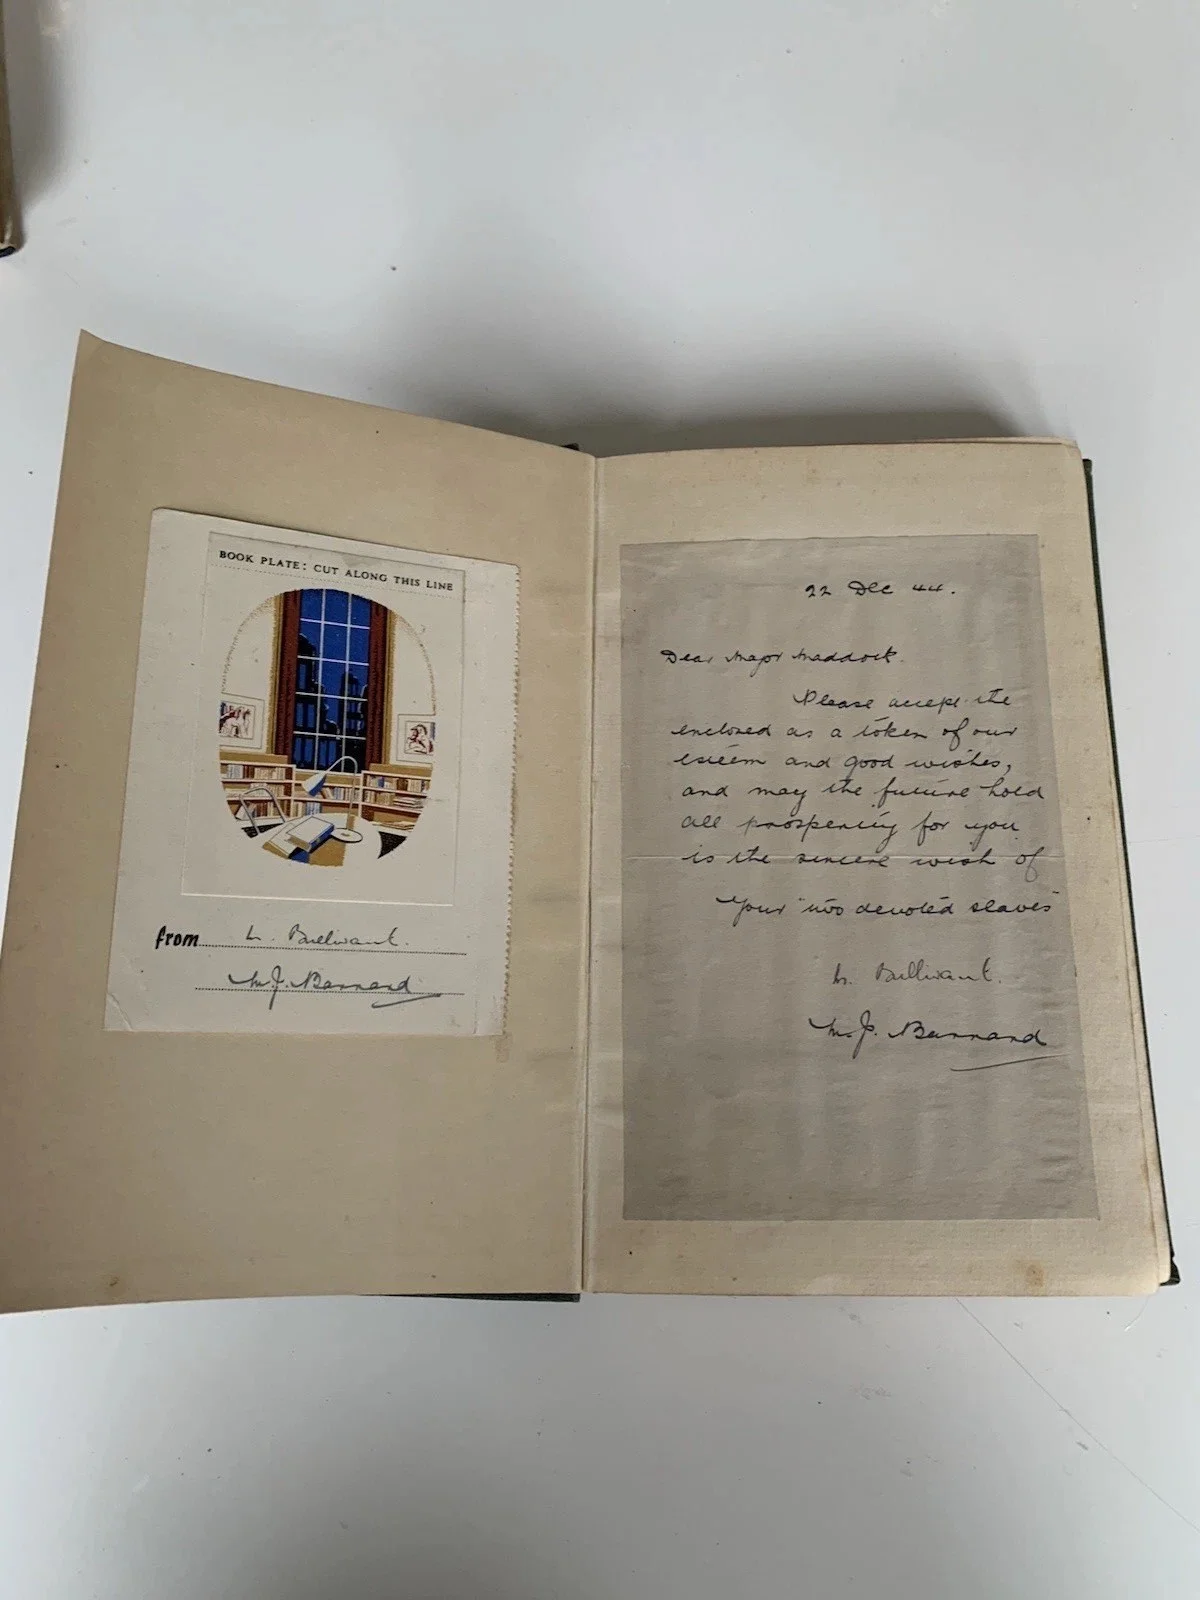 BOOK PLATE: CUT ALONG THIS LINE
from L. Bullivant.
M. J. Barnard
22 Dec 44.
Dear Major Maddock.
Please accept the
enclosed as a token of our
esteem and good wishes,
and may the future hold
all prosperity for you
is the sincere wish of
Your "two devoted slaves"
L. Bullivant.
M. J. Barnard